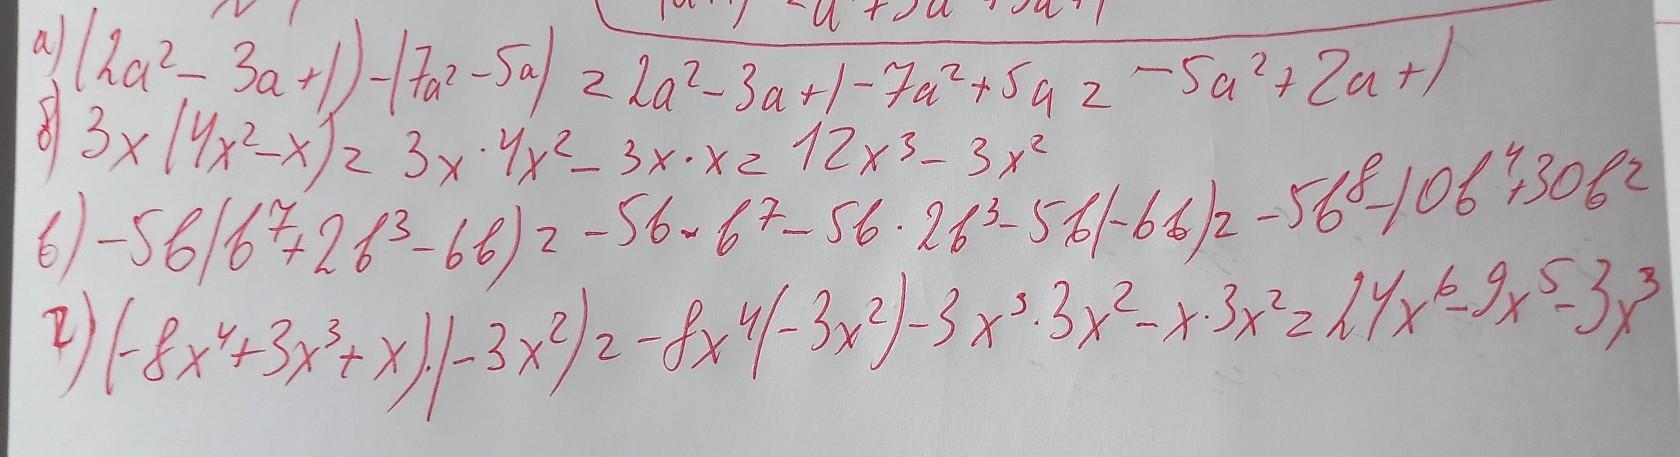 а) (2a² - 3a + 1) - (7a² - 5a) = 2a² - 3a + 1 - 7a² + 5a = -5a² + 2a + 1
б) 3x (4x² - x) = 3x · 4x² - 3x · x = 12x³ - 3x²
в) -5b (b⁷ + 2b³ - 6b) = -5b · b⁷ - 5b · 2b³ - 5b (-6b) = -5b⁸ - 10b⁴ + 30b²
г) (-8x⁴ + 3x³ + x) · (-3x²) = -8x⁴ (-3x²) - 3x³ · 3x² - x · 3x² = 24x⁶ - 9x⁵ - 3x³